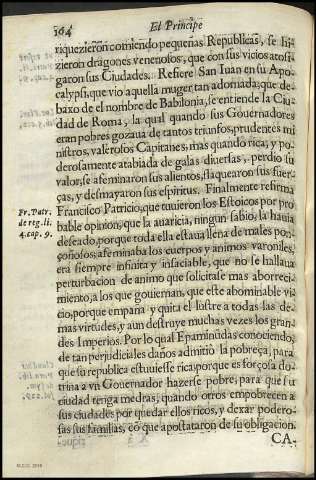 164
El Principe
riquezieron comiendo pequeñas Republicas, se hi
zieron dragones venenosos, que con sus vicios atosi
garon sus Ciudades. Refiere San Iuan en su Apo
calypsi, que vio aquella muger tan adornada; que de
baxo de el nombre de Babilonia, se entiende la Ciu
dad de Roma, la qual quando sus Gouernadores
eran pobres gozaua de tantos triunfos, prudentes mi
nistros, valerosos Capitanes, mas quando rica, y po
derosamente atabiada de galas diuersas, perdio su
valor, se afeminaron sus alientos, flaquearon sus fuer
ças, y desmayaron sus espiritus. Finalmente refirma
Francisco Patricio, que tuuieron los Estoicos por pro
bable opinion, que la auaricia, ningun sabio, la hauia
deseado, porque toda ella estaua llena de males pon
çoñosos; afeminaba los cuerpos y animos varoniles,
era siempre infinita y insaciable, que no se hallaua
perturbacion de animo que solicitase mas aborreci
miento, a los que gouiernan, que este abominable vi
cio, porque empaña y quita el lustre a todas las de
mas virtudes, y aun destruye muchas vezes los gran
des Imperios. Por lo qual Epaminudas conociendo,
de tan perjudiciales daños admitiò la pobreça, para
que su republica estuuiesse rica, porque es forçosa do
trina a vn Gouernador hazerse pobre, para que su
ciudad tenga medras, quando otros empobrecen a
sus ciudades por quedar ellos ricos, y dexar podero-
sas sus familias, cõ que apostataron de su obligacion.
CA-
Fr. Patr.
de reg. li.
4. cap. 9.